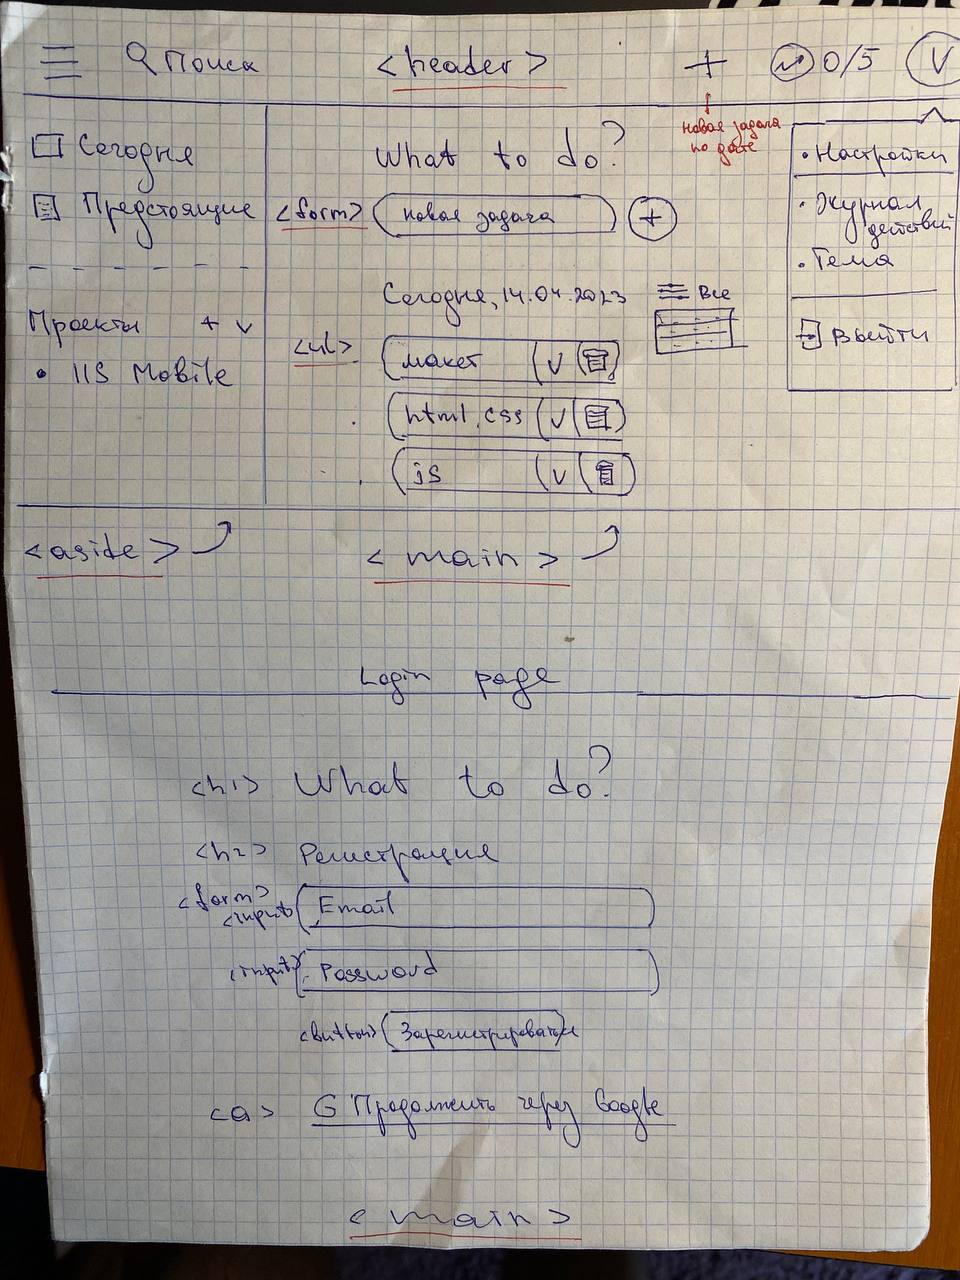 Поиск <header> + 0/5 V
новая задача
по дате
Сегодня
Предстоящие
Проекты + v
• IIS Mobile
What to do?
<form> новая задача +
Сегодня, 14.04.2023
Все
<ul>
макет V
html, css V
js V
• Настройки
• Журнал
действий
• Тема
Выйти
<aside>
<main>
Login page
<h1> What to do?
<h2> Регистрация
<form>
<input> Email
<input> Password
<button> Зарегистрироваться
<a> G Продолжить через Google
<main>